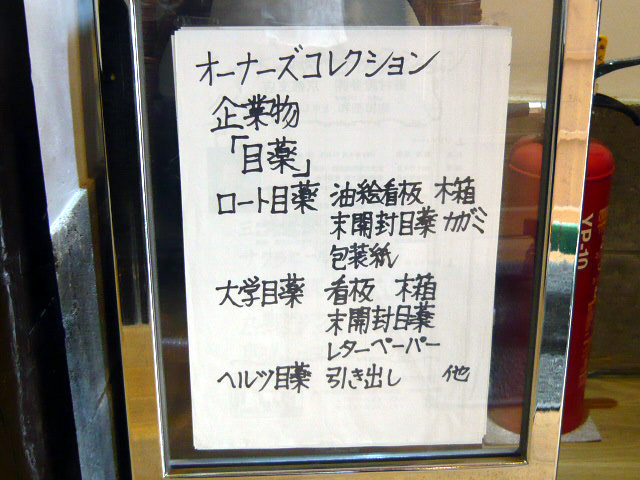 オーナーズコレクション
企業物
「目薬」
ロート目薬 油絵看板 木箱
末開封目薬 カガミ
包装紙
大学目薬 看板 木箱
末開封目薬
レターペーパー
ヘルツ目薬 引き出し 他
YP-10